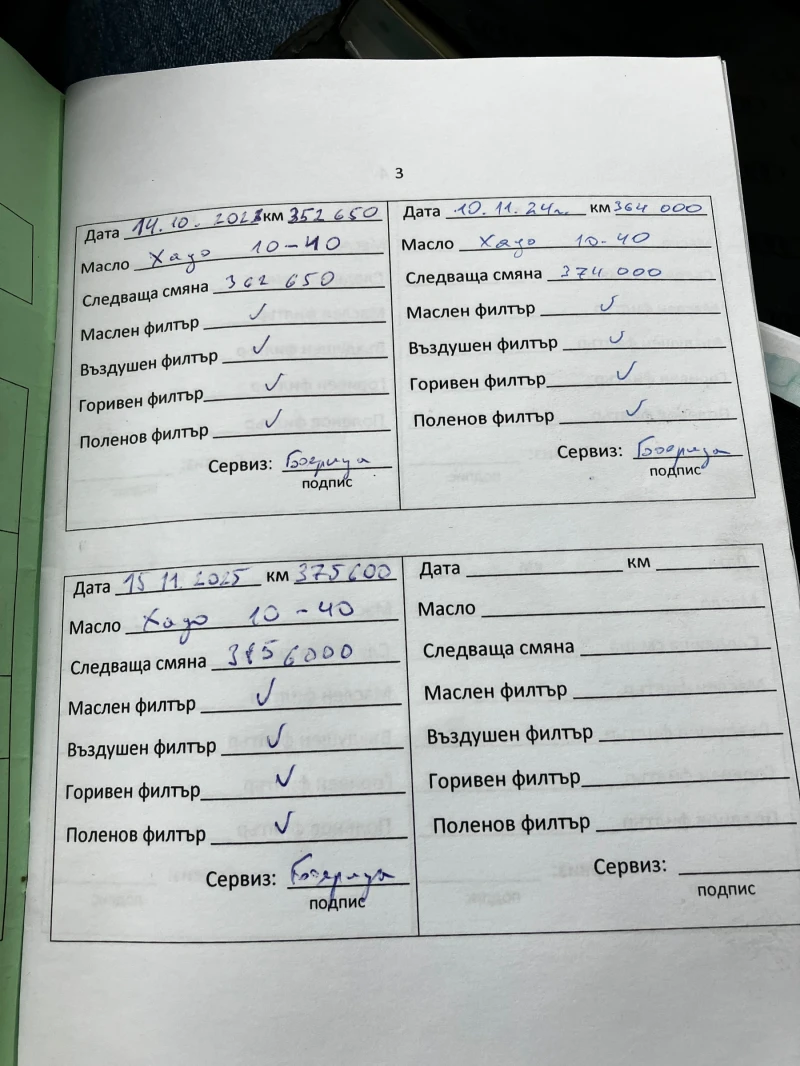 3
Дата 14.10.2023 км 352 650
Масло Хадо 10-40
Следваща смяна 362 650
Маслен филтър ✓
Въздушен филтър ✓
Горивен филтър ✓
Поленов филтър ✓
Сервиз:
подпис
Дата 10.11.24г. км 364 000
Масло Хадо 10-40
Следваща смяна 374 000
Маслен филтър ✓
Въздушен филтър ✓
Горивен филтър ✓
Поленов филтър ✓
Сервиз:
подпис
Дата 15 11. 2025 км 375600
Масло Хадо 10-40
Следваща смяна 3856000
Маслен филтър ✓
Въздушен филтър ✓
Горивен филтър ✓
Поленов филтър ✓
Сервиз:
подпис
Дата км
Масло
Следваща смяна
Маслен филтър
Въздушен филтър
Горивен филтър
Поленов филтър
Сервиз:
подпис